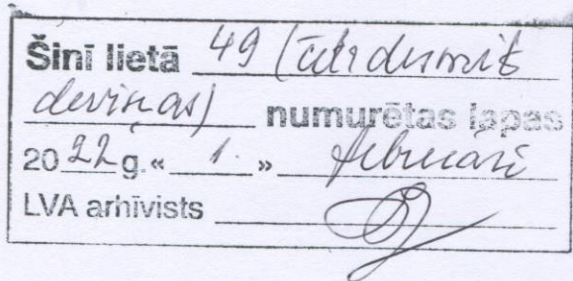 Šinī lietā 49 (četrdesmit
deviņas) numurētas lapas
2022 g. « 1. » februārī
LVA arhīvists